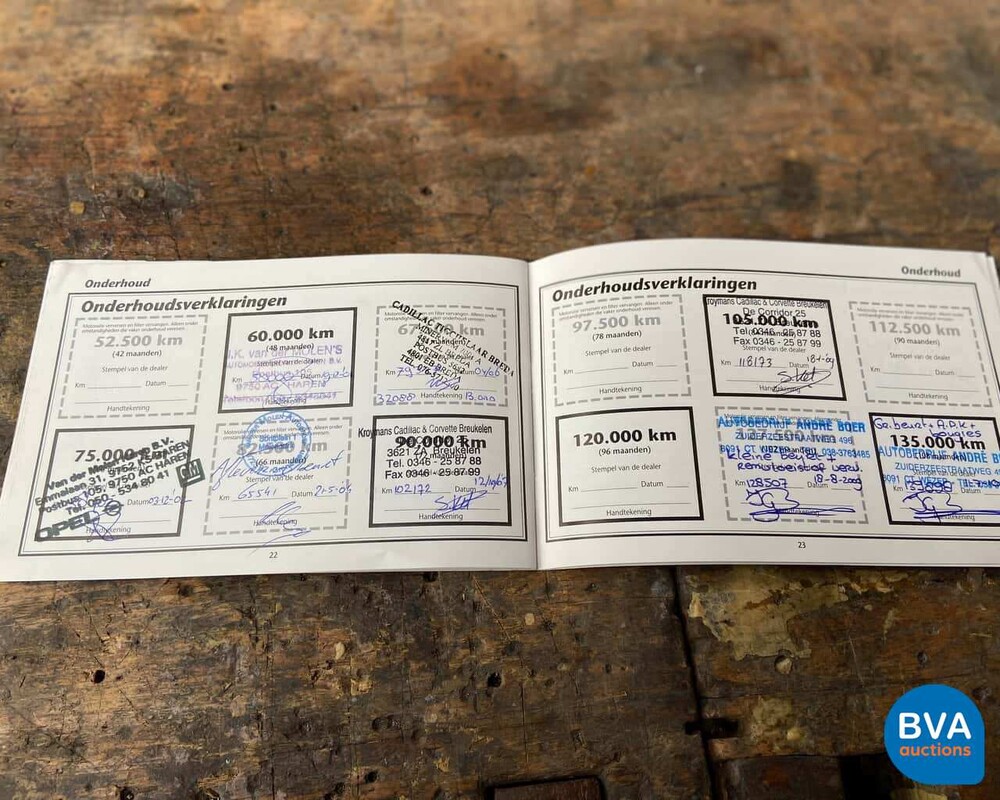 Onderhoud
Onderhoudsverklaringen
Motorolie verversen en filter vervangen. Alleen onder
omstandigheden die vaker onderhoud vereisen.
52.500 km
(42 maanden)
Stempel van de dealer
Km Datum
Handtekening
60.000 km
(48 maanden)
J.K. van der MOLEN'S
Stempel van de dealer
9750 AC HAREN
Km Datum
Handtekening
CADILLAC
BREDA
Km 79 Datum 04/06
32088 Handtekening 13.000
75.000 km
Van der Molen
B.V.
Emmalaan 31, 9752
Postbus 105, 9750 AC HAREN
Tel. 050 - 534 80 41
GM
Datum 03-12-0
OPEL
Handtekening
82.500 km
(66 maanden)
Km 65541 Datum 21-5-0
Handtekening
Kroymans Cadillac & Corvette Breukelen
90.000 km
3621 ZA Breukelen
Tel. 0346 - 25 87 88
Fax 0346 - 25 87 99
Km 102172
Handtekening
22
Onderhoud
Onderhoudsverklaringen
Motorolie verversen en filter vervangen. Alleen onder
omstandigheden die vaker onderhoud vereisen.
97.500 km
(78 maanden)
Stempel van de dealer
Km Datum
Handtekening
Kroymans Cadillac & Corvette Breukelen
De Corridor 25
105.000 km
Tel. 0346 - 25 87 88
Fax 0346 - 25 87 99
Km 118173 Datum 18-1-09
Handtekening
Motorolie verversen en filter vervangen. Alleen onder
omstandigheden die vaker onderhoud vereisen.
112.500 km
(90 maanden)
Stempel van de dealer
Km Datum
Handtekening
120.000 km
(96 maanden)
Stempel van de dealer
Km Datum
Handtekening
AUTOBEDRIJF ANDRÉ BOER
ZUIDERZEESTRAATWEG 496
8091 CT WEZEP 038-3763485
kleine beurt +
remvloeistof verv.
Km 128507 18-8-2009
Handtekening
Gr. beurt + A.P.K +
135.000 km
AUTOBEDRIJF ANDRÉ B
ZUIDERZEESTRAATWEG 4
8091 CT WEZEP
Handtekening
23
BVA
auctions